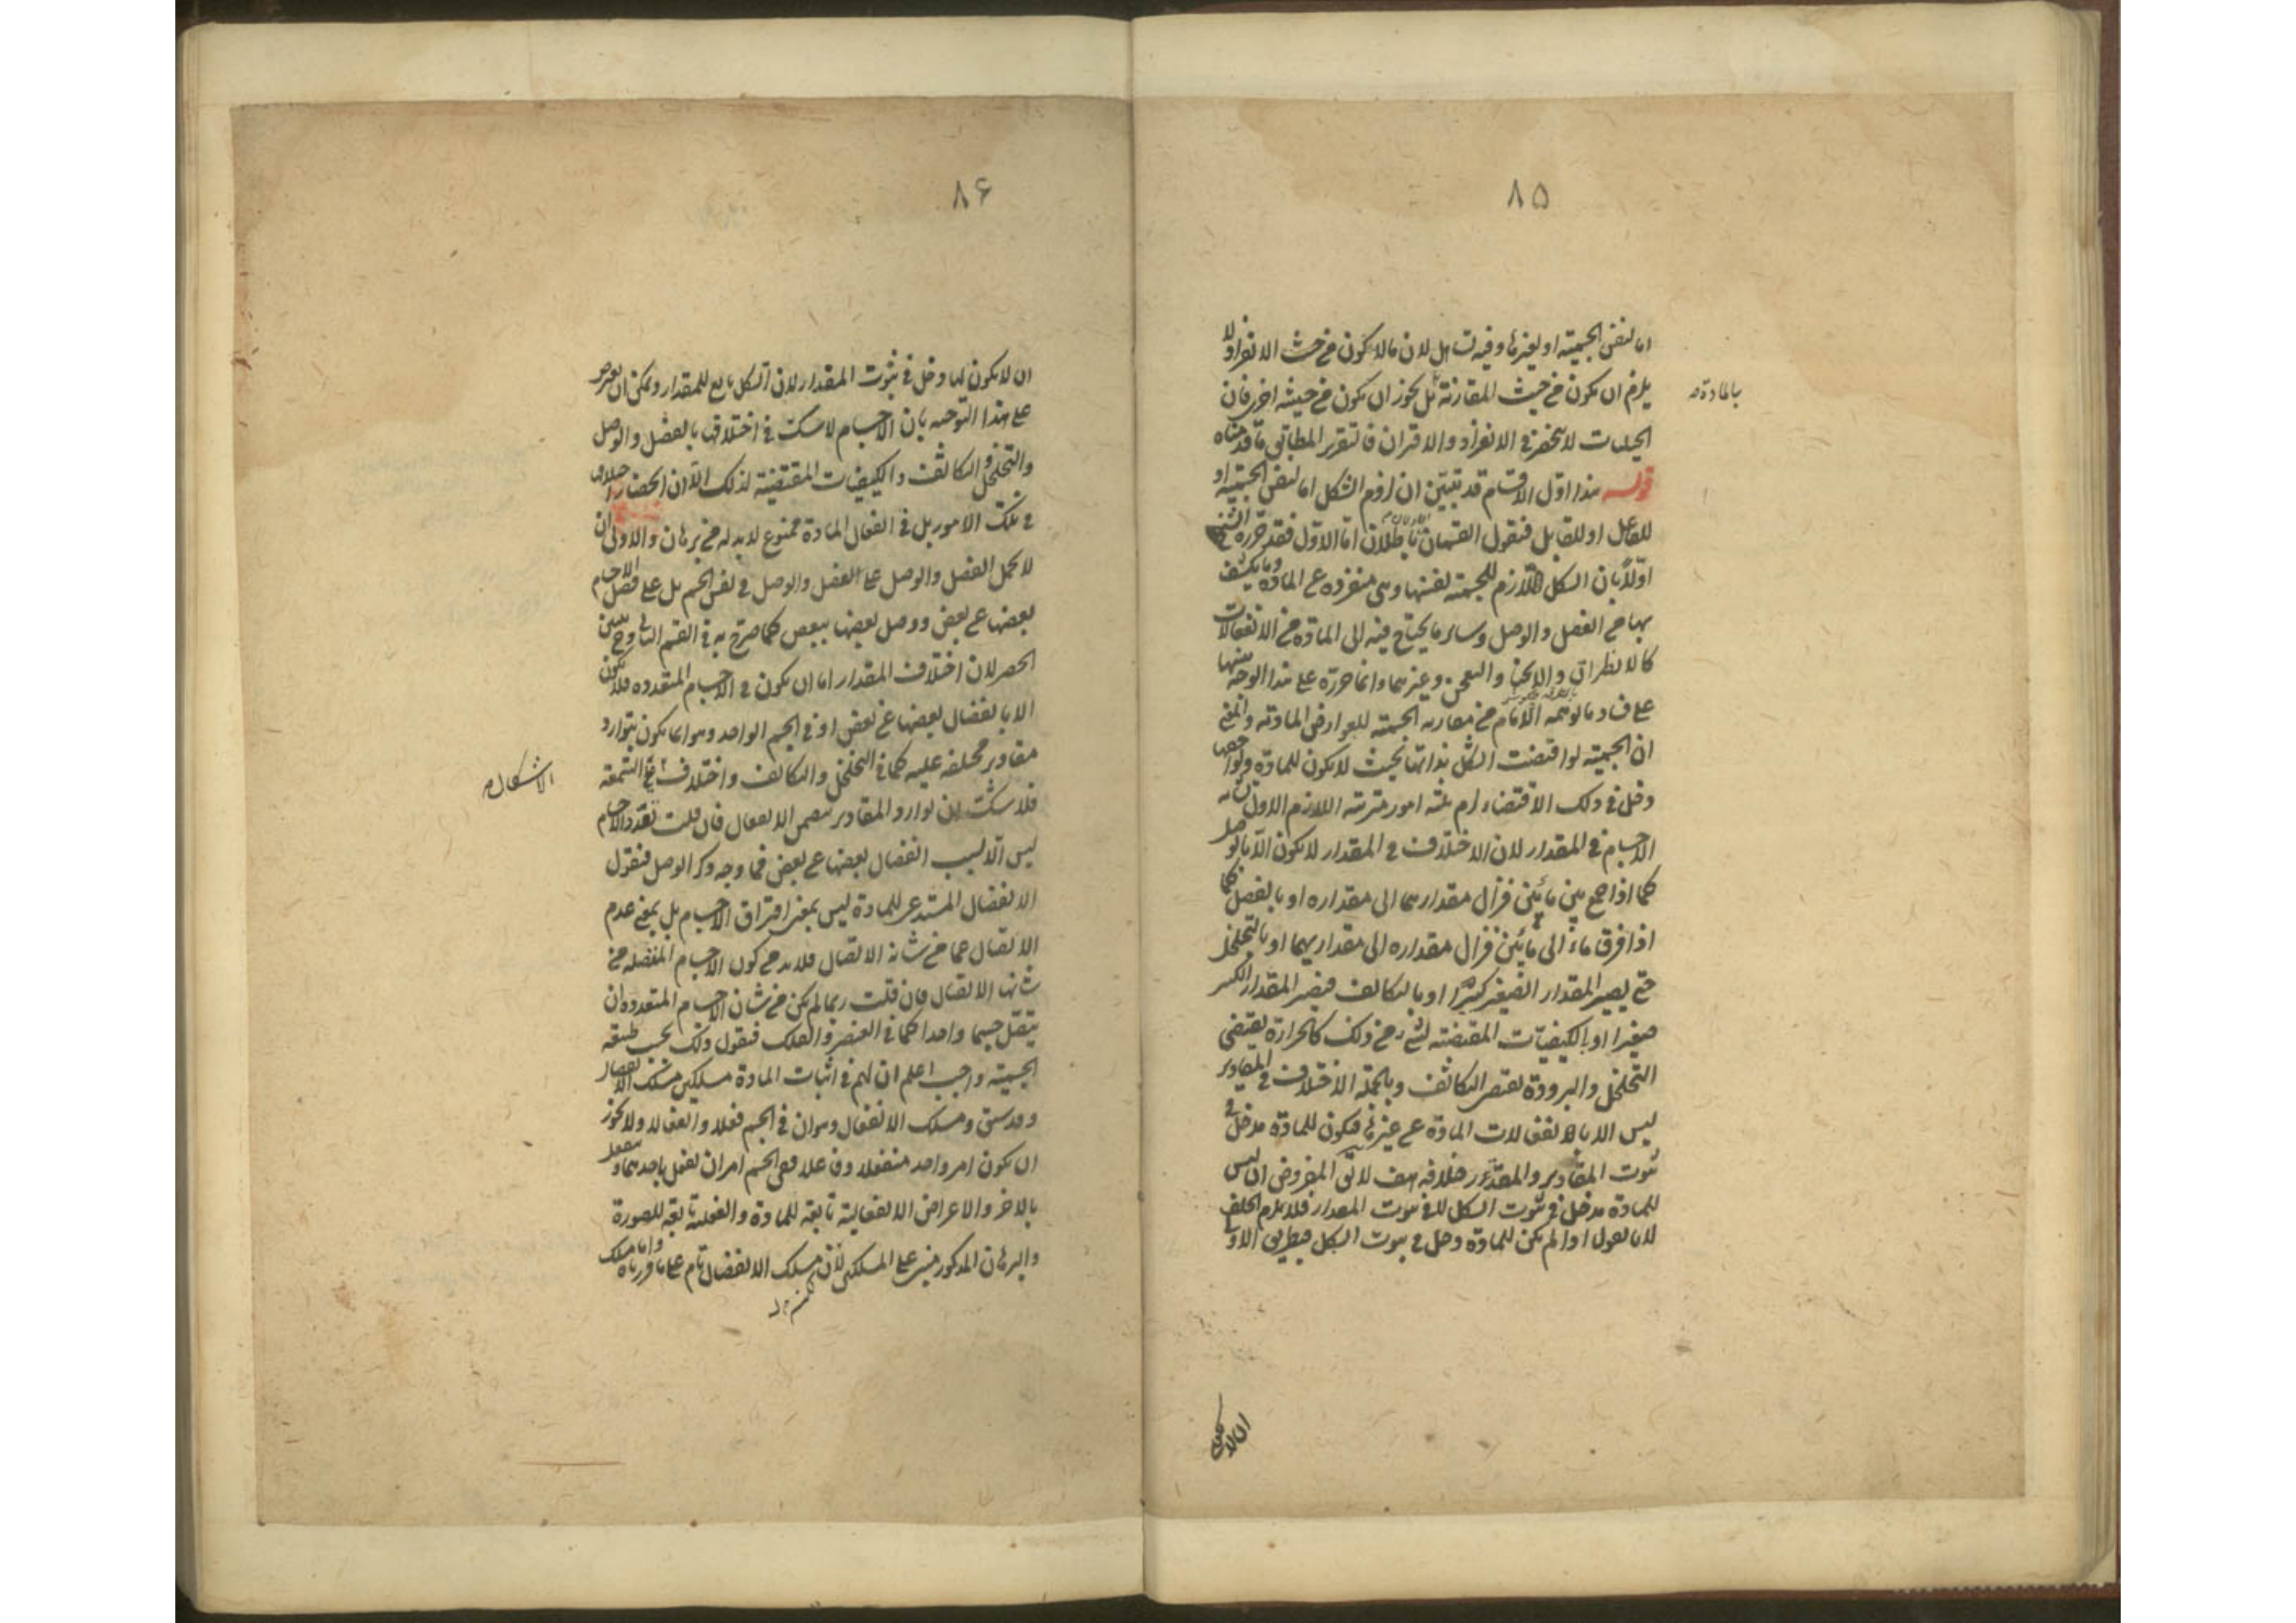 ٨٥
اما لنفس الجسمية او لغيرها وفيه تساهل لان ما لا يكون من حيث الانفراد لا
يلزم ان يكون من حيث المقارنة بل يجوز ان يكون من حيثية اخرى فان
بالمادة
الحيثيات لا تنحصر في الانفراد والاقتران فالتقرير المطابق ما قدمناه
قوله هذا اول الاقسام قد تبين ان لزوم الشكل اما لنفس الجسمية او
للفاعل او للقابل فنقول القسمان باطلان اما الاول فقد حرره الشيخ
اولا بان الشكل اللازم للجسمية لنفسها وهى منفردة عن المادة وما يكتنف
بها من الفصل والوصل وساير ما يحتاج فيه الى المادة من الانفعالات
كالانطراق والانحناء والتعجن وغيرهما وانما حرره على هذا الوجه
على فساد ما توهمه الامام من الجسمية للعوارض المادية والمعنى
ان الجسمية لو اقتضت الشكل بذاتها بحيث لا يكون للمادة ولواحقها
دخل في ذلك الاقتضاء لزم ثلثة امور مترتبة اللازم الاول تشابه
الاجسام في المقدار لان الاختلاف في المقدار لا يكون الا بالوصل
كما اذا جمع بين مائين فزال مقدارهما الى مقداره او بالفصل كما
اذا فرق ماء الى مائين فزال مقداره الى مقداريهما او بالتخلخل
حتى يصير المقدار الصغير كبيرا او بالتكاثف فيصير المقدار الكبير
صغيرا او بالكيفيات المقتضية لشئ من ذلك كالحرارة يقتضى
التخلخل والبرودة يقتضى التكاثف وبالجملة الاختلاف في المقادير
ليس الا بالانفعالات المادة عن غيرها فيكون للمادة مدخل في
ثبوت المقادير والمقدر خلافه هف لا يقال المفروض ان ليس
للمادة مدخل في ثبوت الشكل لا في ثبوت المقدار فلا يلزم الخلف
لانا نقول اذا لم يكن للمادة دخل في ثبوت الشكل فبطريق الاولى
ان لا يكون
٨۶
ان لا يكون لها دخل في ثبوت المقدار لان الشكل تابع للمقدار ويمكن ان يعترض
على هذا التوجيه بان الاجسام لا شك في اختلافها بالفصل والوصل
والتخلخل والتكاثف والكيفيات المقتضية لذلك الا ان انحصار اختلاف
في تلك الامور بل في انفعال المادة ممنوع لا بد له من برهان والاولى ان
لا يحمل الفصل والوصل على الفصل والوصل في نفس الجسم بل على فصل الاجسام
بعضها عن بعض ووصل بعضها ببعض كما صرح به في القسم الثاني وح يتبين
الحصر لان اختلاف المقدار اما ان يكون في الاجسام المتعددة فلا يكون
الا بانفصال بعضها عن بعض او في الجسم الواحد وهو انما يكون بتوارد
مقادير مختلفة عليه كما في التخلخل والتكاثف واختلاف في الشمعة
الاشكال
فلا شك ان توارد المقادير يتضمن الانفعال فان قلت تعدد الاجسام
ليس الا لسبب انفصال بعضها عن بعض فما وجه ذكر الوصل فنقول
الانفصال المستدعى للمادة ليس بمعنى افتراق الاجسام بل بمعنى عدم
الاتصال عما من شانه الاتصال فلا بد من كون الاجسام المنفصلة من
شانها الاتصال فان قلت ربما لم يكن من شان الاجسام المتعددة ان
يتصل جسما واحدا كما في العنصر والفلك فنقول ذلك بحسب طبيعة
الجسمية واجب اعلم ان لهم في اثبات المادة مسلكين مسلك الانفصال
وقد سبق ومسلك الانفعال وهو ان في الجسم فعلا وانفعالا ولا يجوز
ان يكون امر واحد منفعلا وفاعلا ففى الجسم امران يفعل باحدهما وينفعل
بالاخر والاعراض الانفعالية تابعة للمادة والفعلية تابعة للصورة
والبرهان المذكور مبنى على المسلكين لان مسلك الانفصال تام على ما قررناه واما مسلك